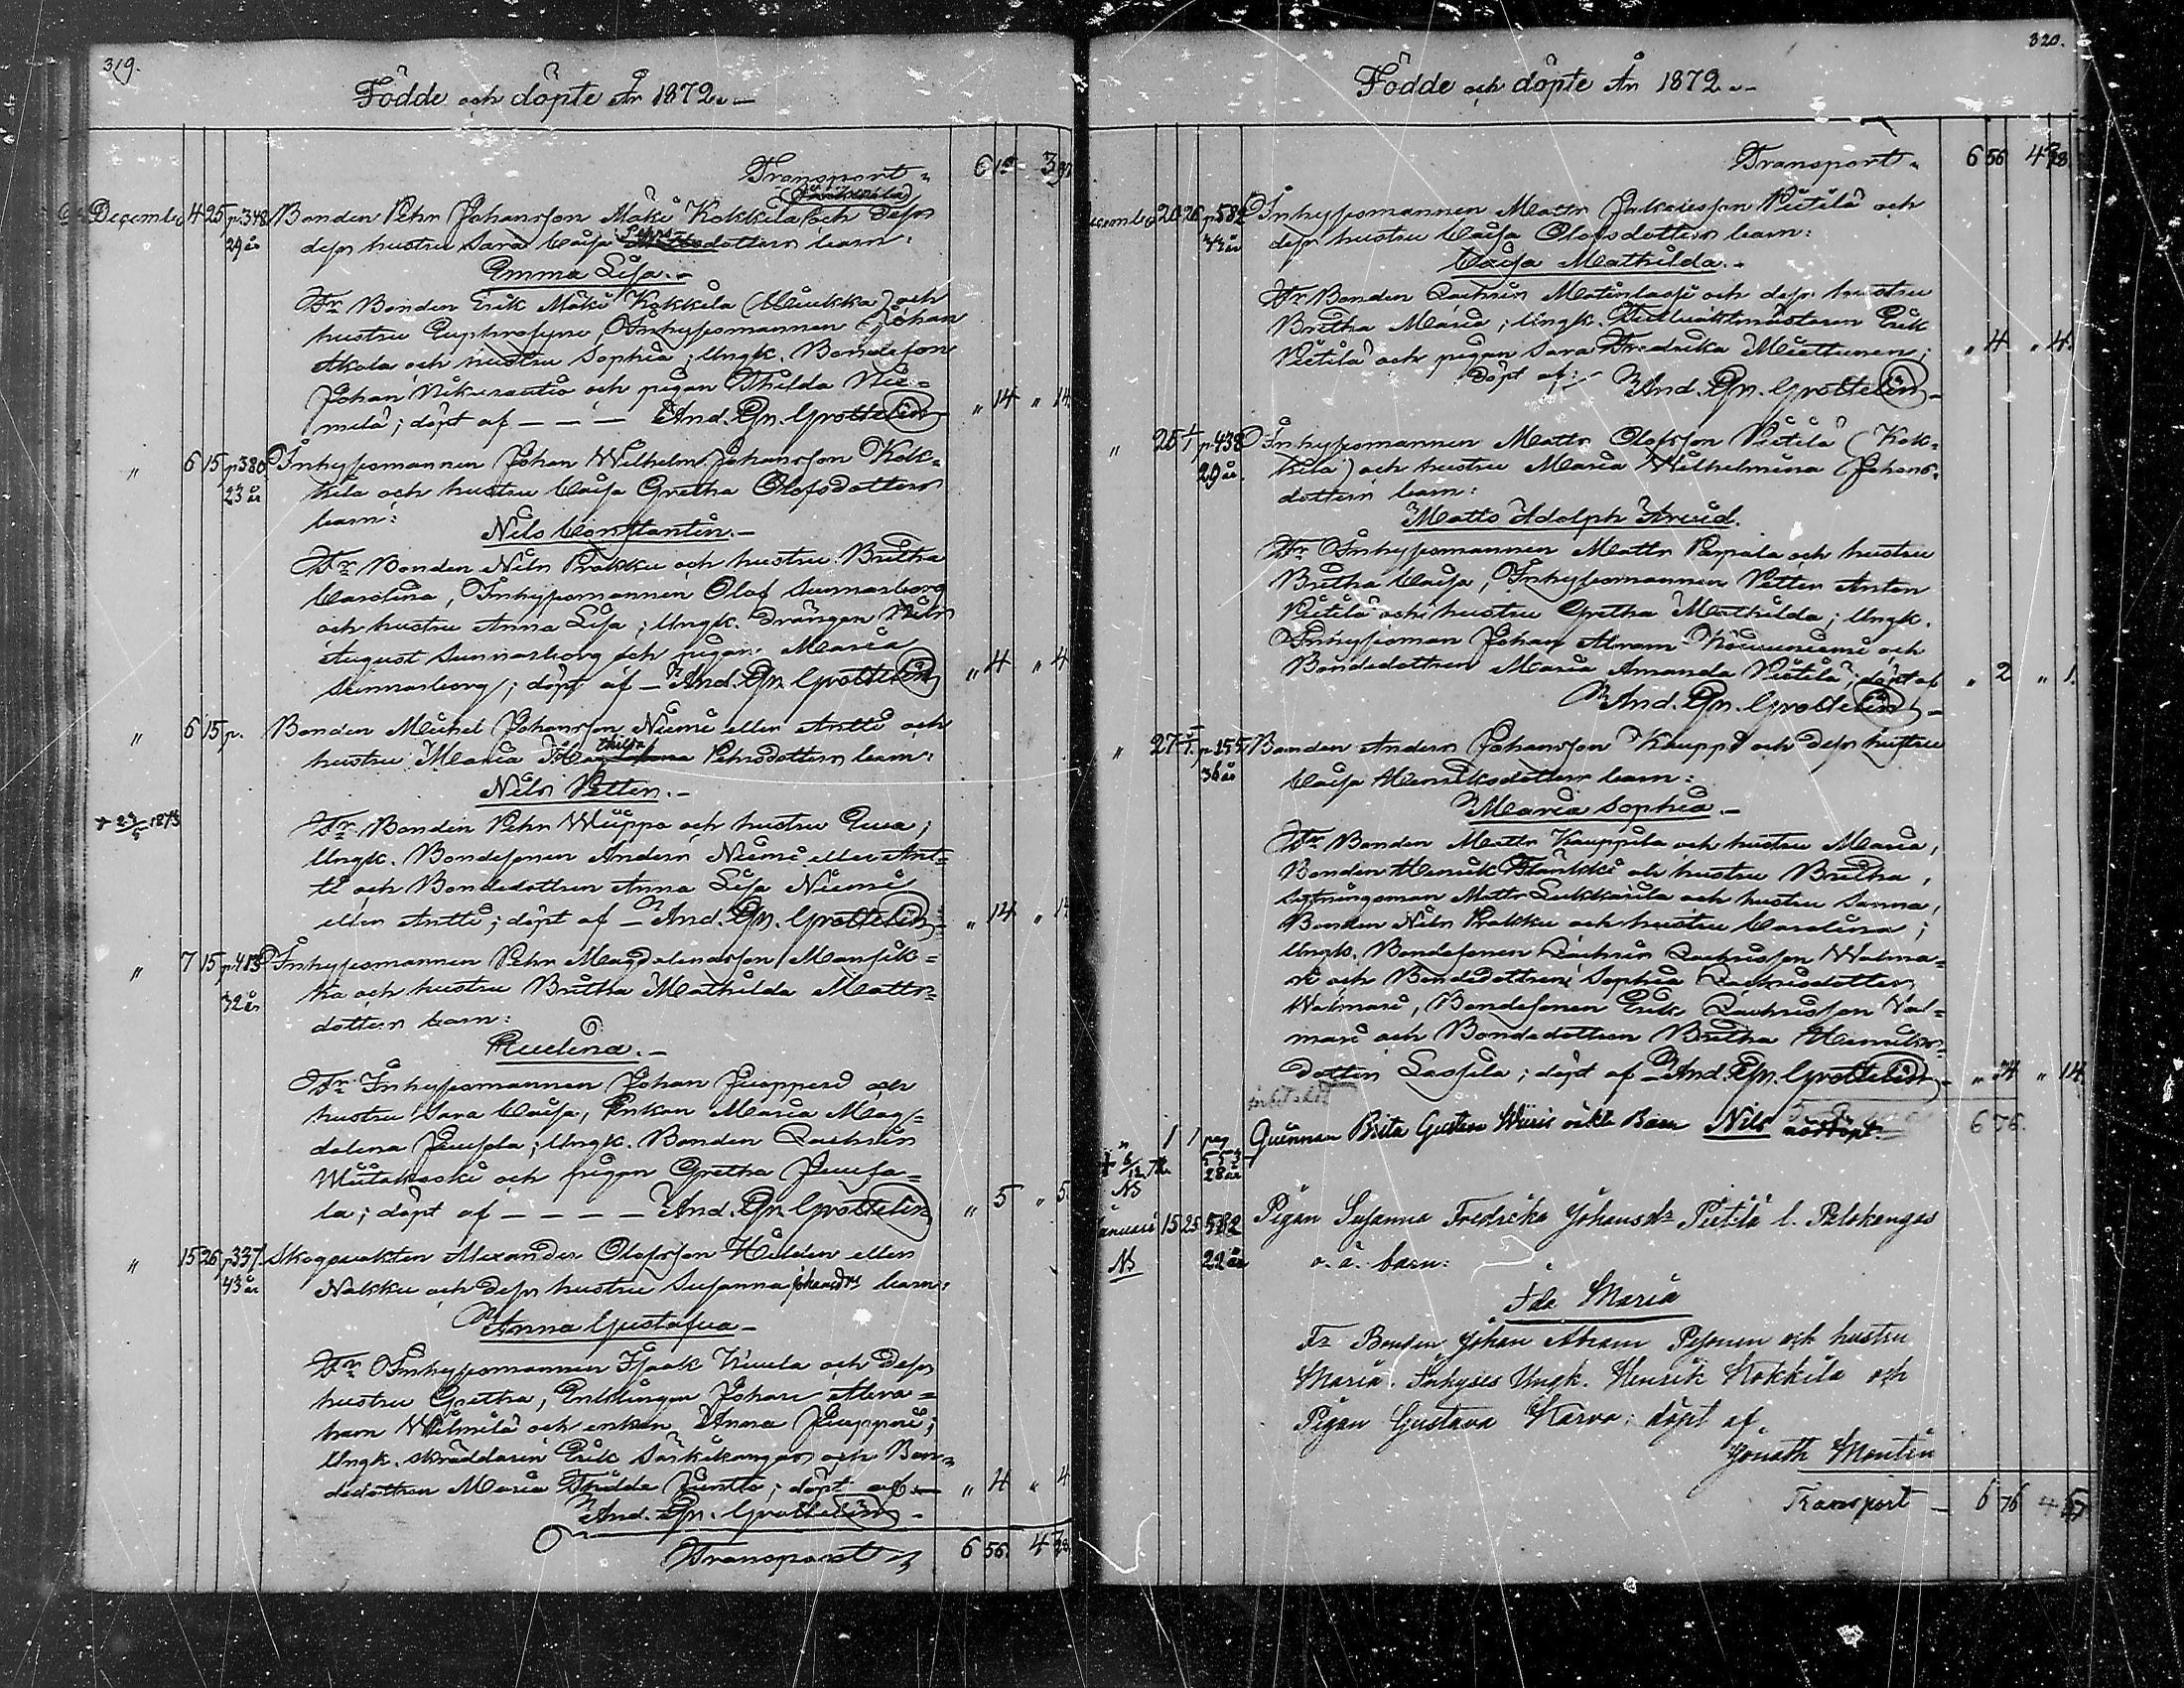 319.
Födde och döpte År 1872.
Transport
December 4 25 p.348 Bonden Pehr Johansson Mäki Kokkila och dess
29 år dess hustru Sara Caisa Pehrsdotters barn:
Emma Lisa.
Fr Bonden Erik Mäki Kokkila och
hustru Euphrosyne, Inhysesmannen Johan
Akola och hustru Sophia; Ungk. Bondeson
Johan och pigan Thilda Nie-
melä; döpt af And. Gn. Grottelin
14 14
" 6 15 p.380 Inhysesmannen Johan Wilhelm Johansson Kok-
23 år kila och hustru Caisa Gretha Olofsdotters
barn:
Nils Constantin.
Fr Bonden Nils Prokku och hustru Britha
Carolina, Inhysesmannen Olof Sunnarborg
och hustru Anna Lisa; Ungk. Drängen Nils
August Sunnarborg och pigan Maria
Sunnarborg; döpt af And. Gn. Grottelin
" 4 " 4
" 6 15 p. Bonden Michel Johansson Niemi eller Antti och
hustru Maria Mathilda Pehrsdotters barn:
Nils Petter.
1873 Fr Bonden Pehr Wuppo och hustru Eva;
Ungk. Bondesonen Anders Niemi eller Ant-
ti och Bondedottren Anna Lisa Niemi
eller Antti; döpt af And. Gn. Grottelin
" 14
" 7 15 p.483 Inhysesmannen Pehr Magdalenasson Mansik-
32 år ka och hustru Britha Mathilda Matts-
dotters barn:
Fr Inhysesmannen Johan Juopperi och
hustru Sara Caisa, Enkan Maria Mag-
dalena; Ungk. Bonden Zachris
Mustakoski och pigan Gretha
la; döpt af And. Gn. Grottelin
" 5 " 5
" 15 26 p.337 Skogvakten Alexander Olofsson Hilden eller
43 år Nakku och dess hustru Susanna Johansdr barn:
Anna Gustafva
Fr Inhysesmannen Isaak Kuula och dess
hustru Gretha, Enklingen Johan Abra-
ham och enkan Anna Juopperi;
Ungk. skräddaren Erik Särkikangas och Bon-
dedottren Maria Thilda Juntti; döpt af
And. Gn. Grottelin
" 4 " 4
Transport 6 56

320.
Födde och döpte År 1872.
Transport 6 56
December 20 26 p.582 Inhysesmannen Matts Pietilä och
dess hustru Caisa Olofsdotters barn:
Caisa Mathilda.
Fr Bonden Zachris och dess hustru
Britha Maria; Ungk. Erik
Pietilä och pigan Sara Fredrika Miettunen;
döpt af And. Gn. Grottelin
" 4 " 4
" 25 p.438 Inhysesmannen Matts Olofsson Pietilä (Kok-
29 år. kila) och hustru Maria Wilhelmina Johans-
dotters barn:
Matts Adolph Arvid.
Fr Inhysesmannen Matts Parpala och hustru
Britha Caisa, Inhysesmannen Petter Anton
Pietilä och hustru Gretha Mathilda; Ungk.
Inhysesman Johan Abram och
Bondedottren Maria Amanda Pietilä; döpt af
And. Gn. Grottelin
" 2 " 1.
" 27 p.155 Bonden Anders Johansson Kauppi och dess hustru
36 år Caisa Henriksdotters barn:
Maria Sophia.
Fr Bonden Matts Kauppila och hustru Maria,
Bonden Henrik och hustru Britha,
sytningsman Matts Lukkarila och hustru Sanna,
Bonden Nils Prokku och hustru Carolina;
Ungk. Bondesonen Zachris Zachrisson Walma-
ri och Bondedottren Sophia Zachrisdotter
Walmari, Bondesonen Erik Zachrisson Wal-
mari och Bondedottren Britha Henriks-
dotter Lassila; döpt af And. Gn. Grottelin
" 14 " 14
1 1 pag Qvinnan Brita Gustava oäkta Barn Nils nöddöpt. 6 76.
28 år
Januari 15 25 582 Pigan Susanna Fredricka Johansdr Pietilä l. Palokangas
22 år o. ä. barn:
Ida Maria
Fr Bonden Johan Abram Pesonen och hustru
Maria. Inhyses Ungk. Henrik Kokkila och
Pigan Gustava Karvo; döpt af
Jonath Montin
Transport 6 76